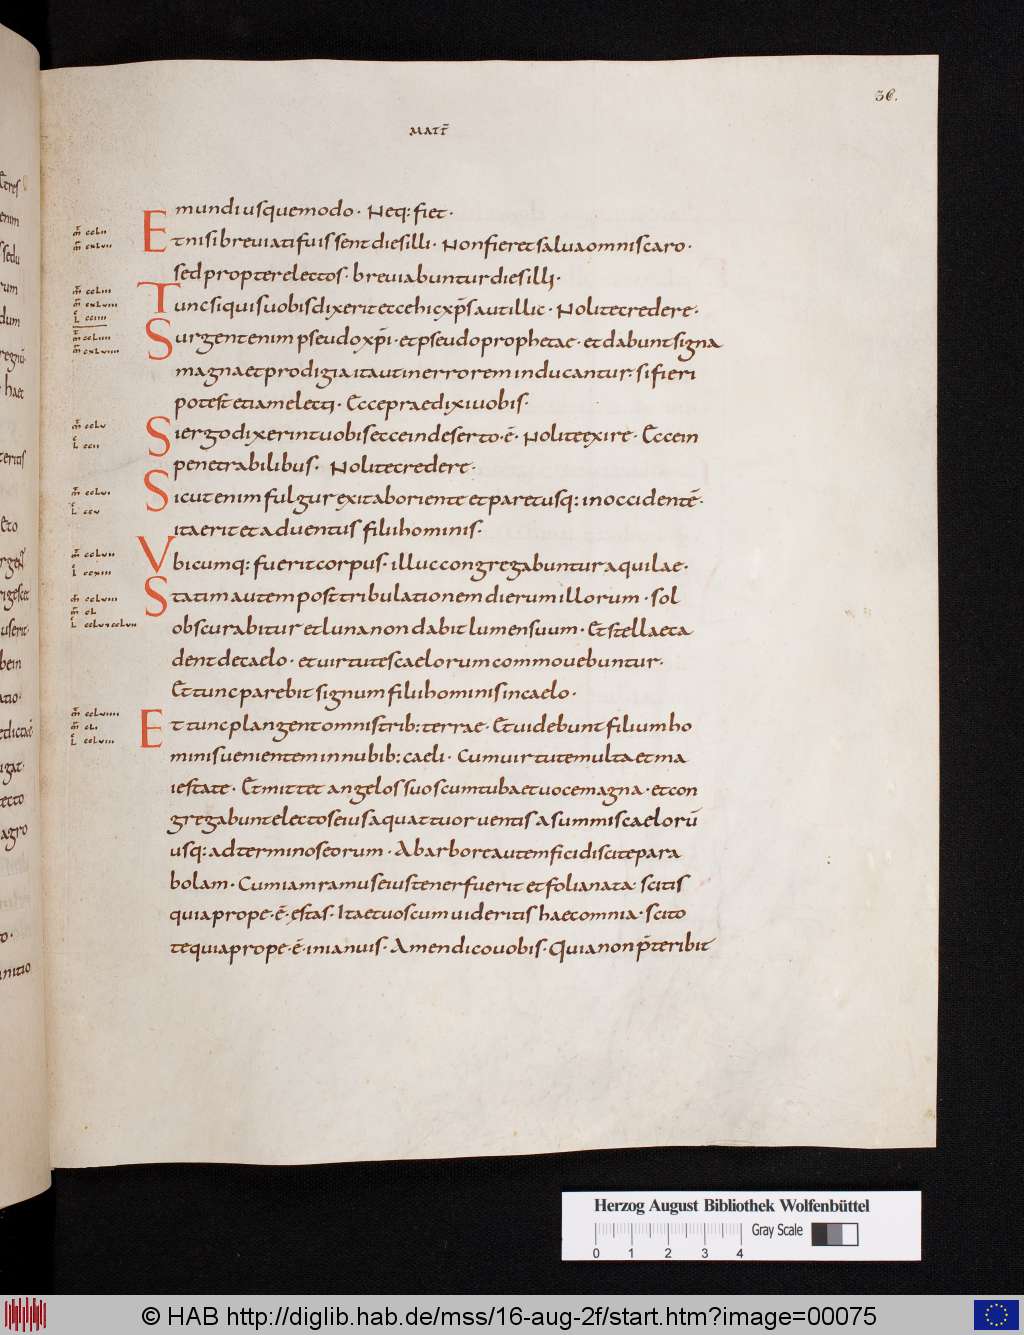 36.
MATT̄
mundi usque modo· Neq: fiet·
Et nisi breviati fuissent dies illi· Non fieret salva omnis caro·
sed propter electos· breviabuntur dies illi·
Tunc si quis vobis dixerit ecce hic xp̄s aut illic· Nolite credere·
Surgent enim pseudoxp̄i· et pseudoprophetae· et dabunt signa
magna et prodigia ita ut in errorem inducantur· si fieri
potest etiam electi· Ecce praedixi vobis·
Si ergo dixerint vobis ecce in deserto·ē· Nolite exire· Ecce in
penetrabilibus· Nolite credere·
Sicut enim fulgur exit ab oriente et paret usq: in occidentē·
ita erit et adventus filii hominis·
Ubicumq: fuerit corpus· illuc congregabuntur aquilae·
Statim autem post tribulationem dierum illorum· sol
obscurabitur et luna non dabit lumen suum· Et stellae ca
dent de caelo· et virtutes caelorum commovebuntur·
Et tunc parebit signum filii hominis in caelo·
Et tunc plangent omnis trib: terrae· Et videbunt filium ho
minis venientem in nubib: caeli· Cum virtute multa et ma
iestate· Et mittet angelos suos cum tuba et voce magna· et con
gregabunt electos eius a quattuor ventis a summis caelorū
usq: ad terminos eorum· Ab arbore autem fici discite para
bolam· Cum iam ramus eius tener fuerit et folia nata scitis
quia prope·ē·estas· Ita et vos cum videritis haec omnia· scito
te quia prope·ē·in ianuis· Amen dico vobis· Quia non p̄teribit
Herzog August Bibliothek Wolfenbüttel
Gray Scale
0 1 2 3 4
© HAB http://diglib.hab.de/mss/16-aug-2f/start.htm?image=00075